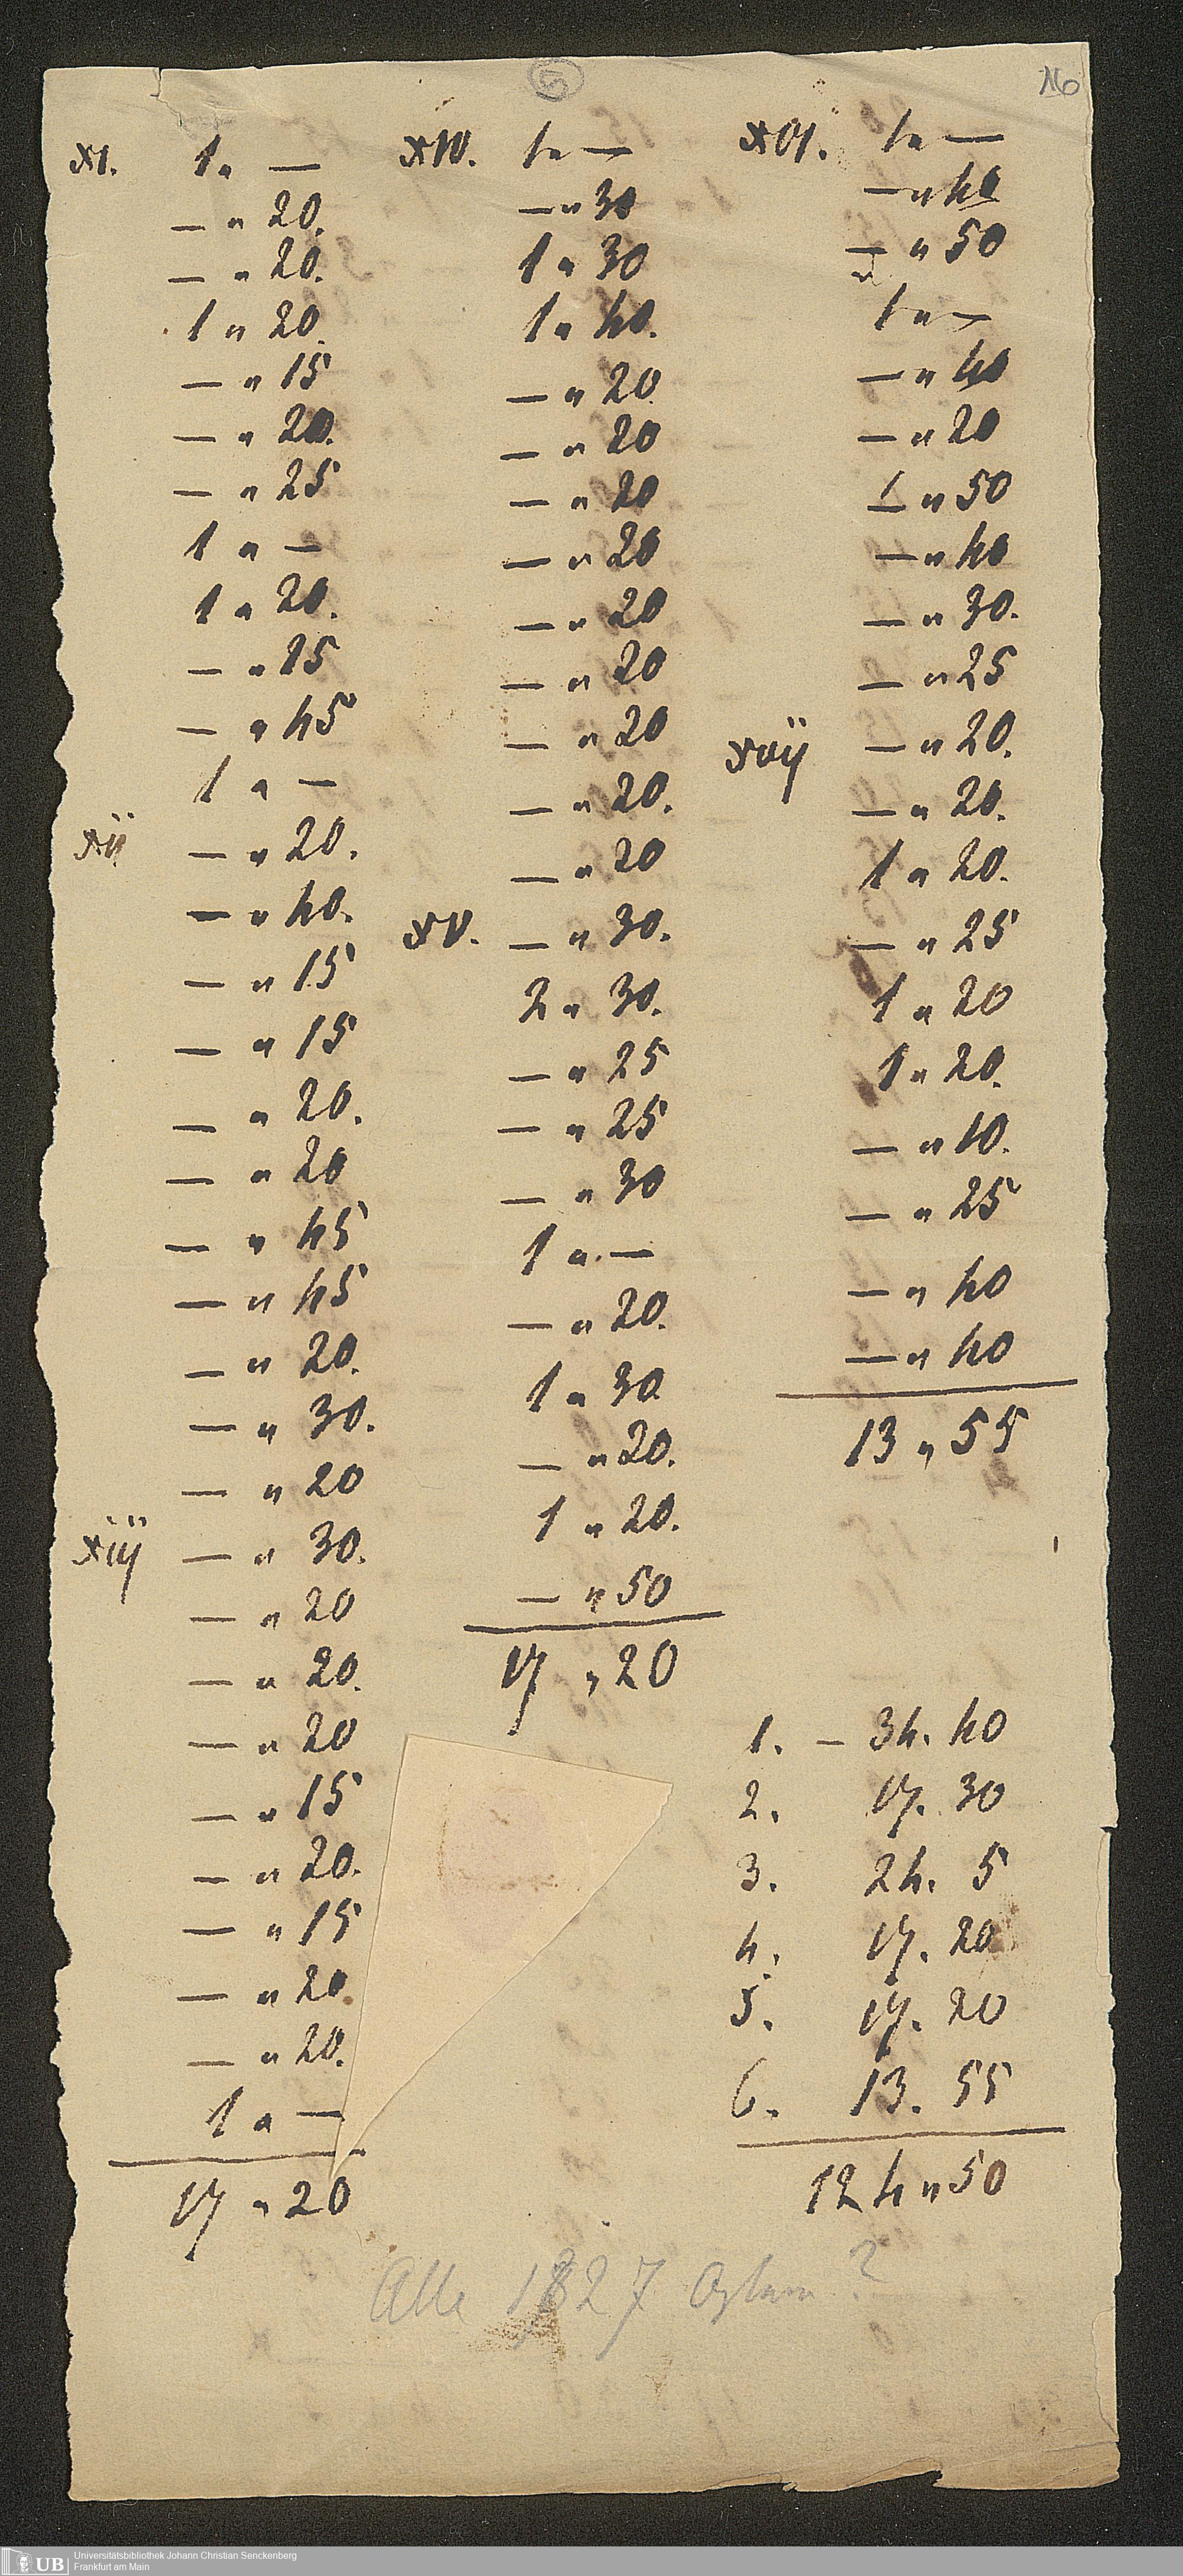 5
16
XI. 1 " —
— " 20.
— " 20.
1 " 20.
— " 15
— " 20.
— " 25
1 " —
1 " 20.
— " 15
— " 45
1 " —
XII — " 20.
— " 40.
— " 15
— " 15
— " 20.
— " 20
— " 45
— " 45
— " 20.
— " 30.
— " 20
XIIJ — " 30.
— " 20
— " 20.
— " 20
— " 15
— " 20.
— " 15
— " 20.
— " 20.
1 " —
17 " 20
XIV. 1 " —
— " 30
1 " 30
1 " 40.
— " 20
— " 20
— " 20
— " 20
— " 20
— " 20
— " 20
— " 20.
— " 20
XV. — " 30.
2 " 30.
— " 25
— " 25
— " 30
1 " —
— " 20.
1 " 30
— " 20.
1 " 20.
— " 50
17 " 20
XVI. 1 " —
— " 40
— " 50
1 " —
— " 40
— " 20
1 " 50
— " 40
— " 30.
— " 25
XVIJ — " 20.
— " 20.
1 " 20.
— " 25
1 " 20
1 " 20.
— " 10.
— " 25
— " 40
— " 40
13 " 55
1. – 34. 40
2. 17. 30
3. 24. 5
4. 17. 20
5. 17. 20
6. 13. 55
124 " 50
Alle 1827 ?
UB Universitätsbibliothek Johann Christian Senckenberg
Frankfurt am Main